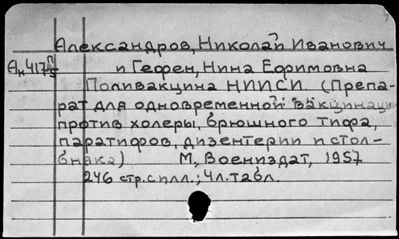 Александров, Николай Иванович
и Гефен, Нина Ефимовна
Поливакцина НИИСИ. (Препа-
рат для одновременной вакцинации
против холеры, брюшного тифа,
паратифов, дизентерии и столб-
няка) М, Воениздат, 1957
246 стр. с илл.; 4л. табл.